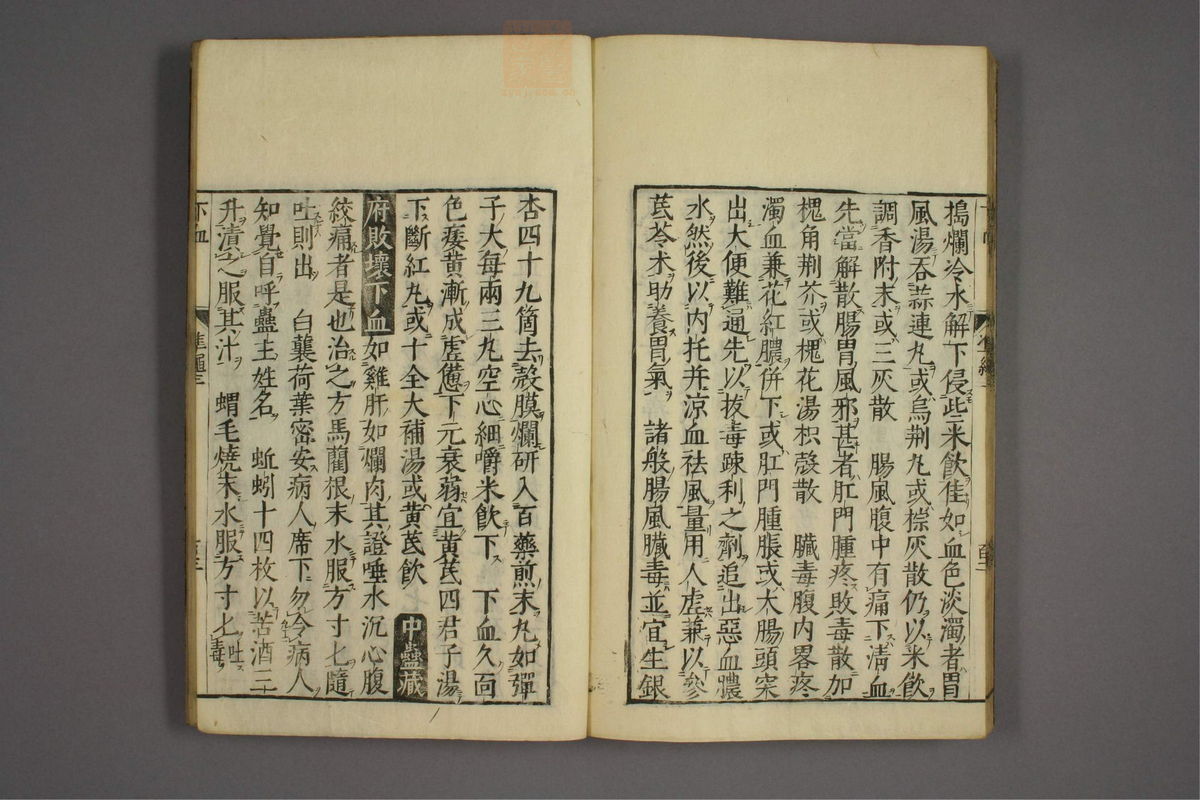 搗爛冷水解下侵些二米飲佳如血色淡濁者胃
風湯吞蒜連丸或烏荆丸或棕灰散仍以米飲
調香附末或三灰散 腸風腹中有痛下清血
先當解散腸胃風邪甚者肛門腫疼敗毒散加
槐角荆芥或槐花湯枳殼散 臟毒腹内畧疼
濁血兼花紅膿併下或肛門腫脹或大腸頭突
出大便難通先以拔毒疎利之劑追出惡血膿
水然後以内托并涼血祛風量用人虛兼以參
芪苓朮助養胃氣 諸般腸風臟毒並宜生銀
杏四十九箇去殼膜爛研入百藥煎末丸如彈
子大每兩三丸空心細嚼米飲下 下血久面
色痿黃漸成虛憊下元衰弱宜黃芪四君子湯
下斷紅丸或十全大補湯或黃芪飲 中蠱臟
府敗壞下血如雞肝如爛肉其證唾水沉心腹
絞痛者是也治之方馬藺根末水服方寸匕隨
吐則出 白蘘荷葉密安病人席下勿令病人
知覺自呼蠱主姓名 蚯蚓十四枚以苦酒三
升漬之服其汁 蝟毛燒末水服方寸匕吐毒
下血
準繩三